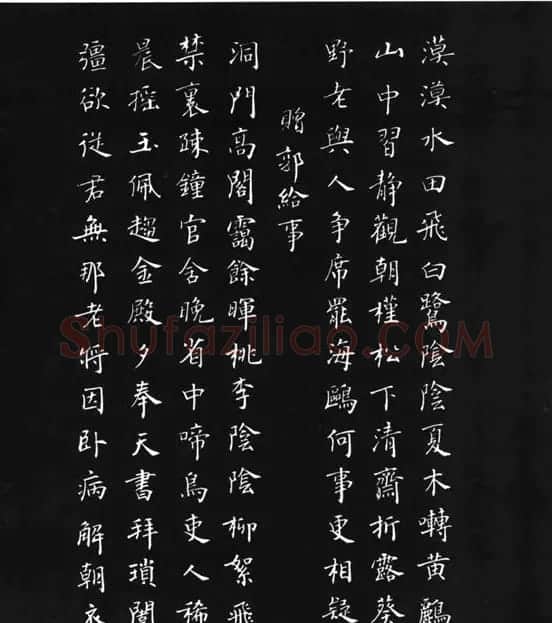 漠漠水田飛白鷺陰陰夏木囀黃鸝
山中習靜觀朝槿松下清齋折露葵
野老與人爭席罷海鷗何事更相疑
贈郭給事
洞門高閣靄餘暉桃李陰陰柳絮飛
禁裏疎鐘官舍晚省中啼鳥吏人稀
晨搖玉佩趨金殿夕奉天書拜瑣闈
彊欲從君無那老將因臥病解朝衣
Shufaziliao.COM